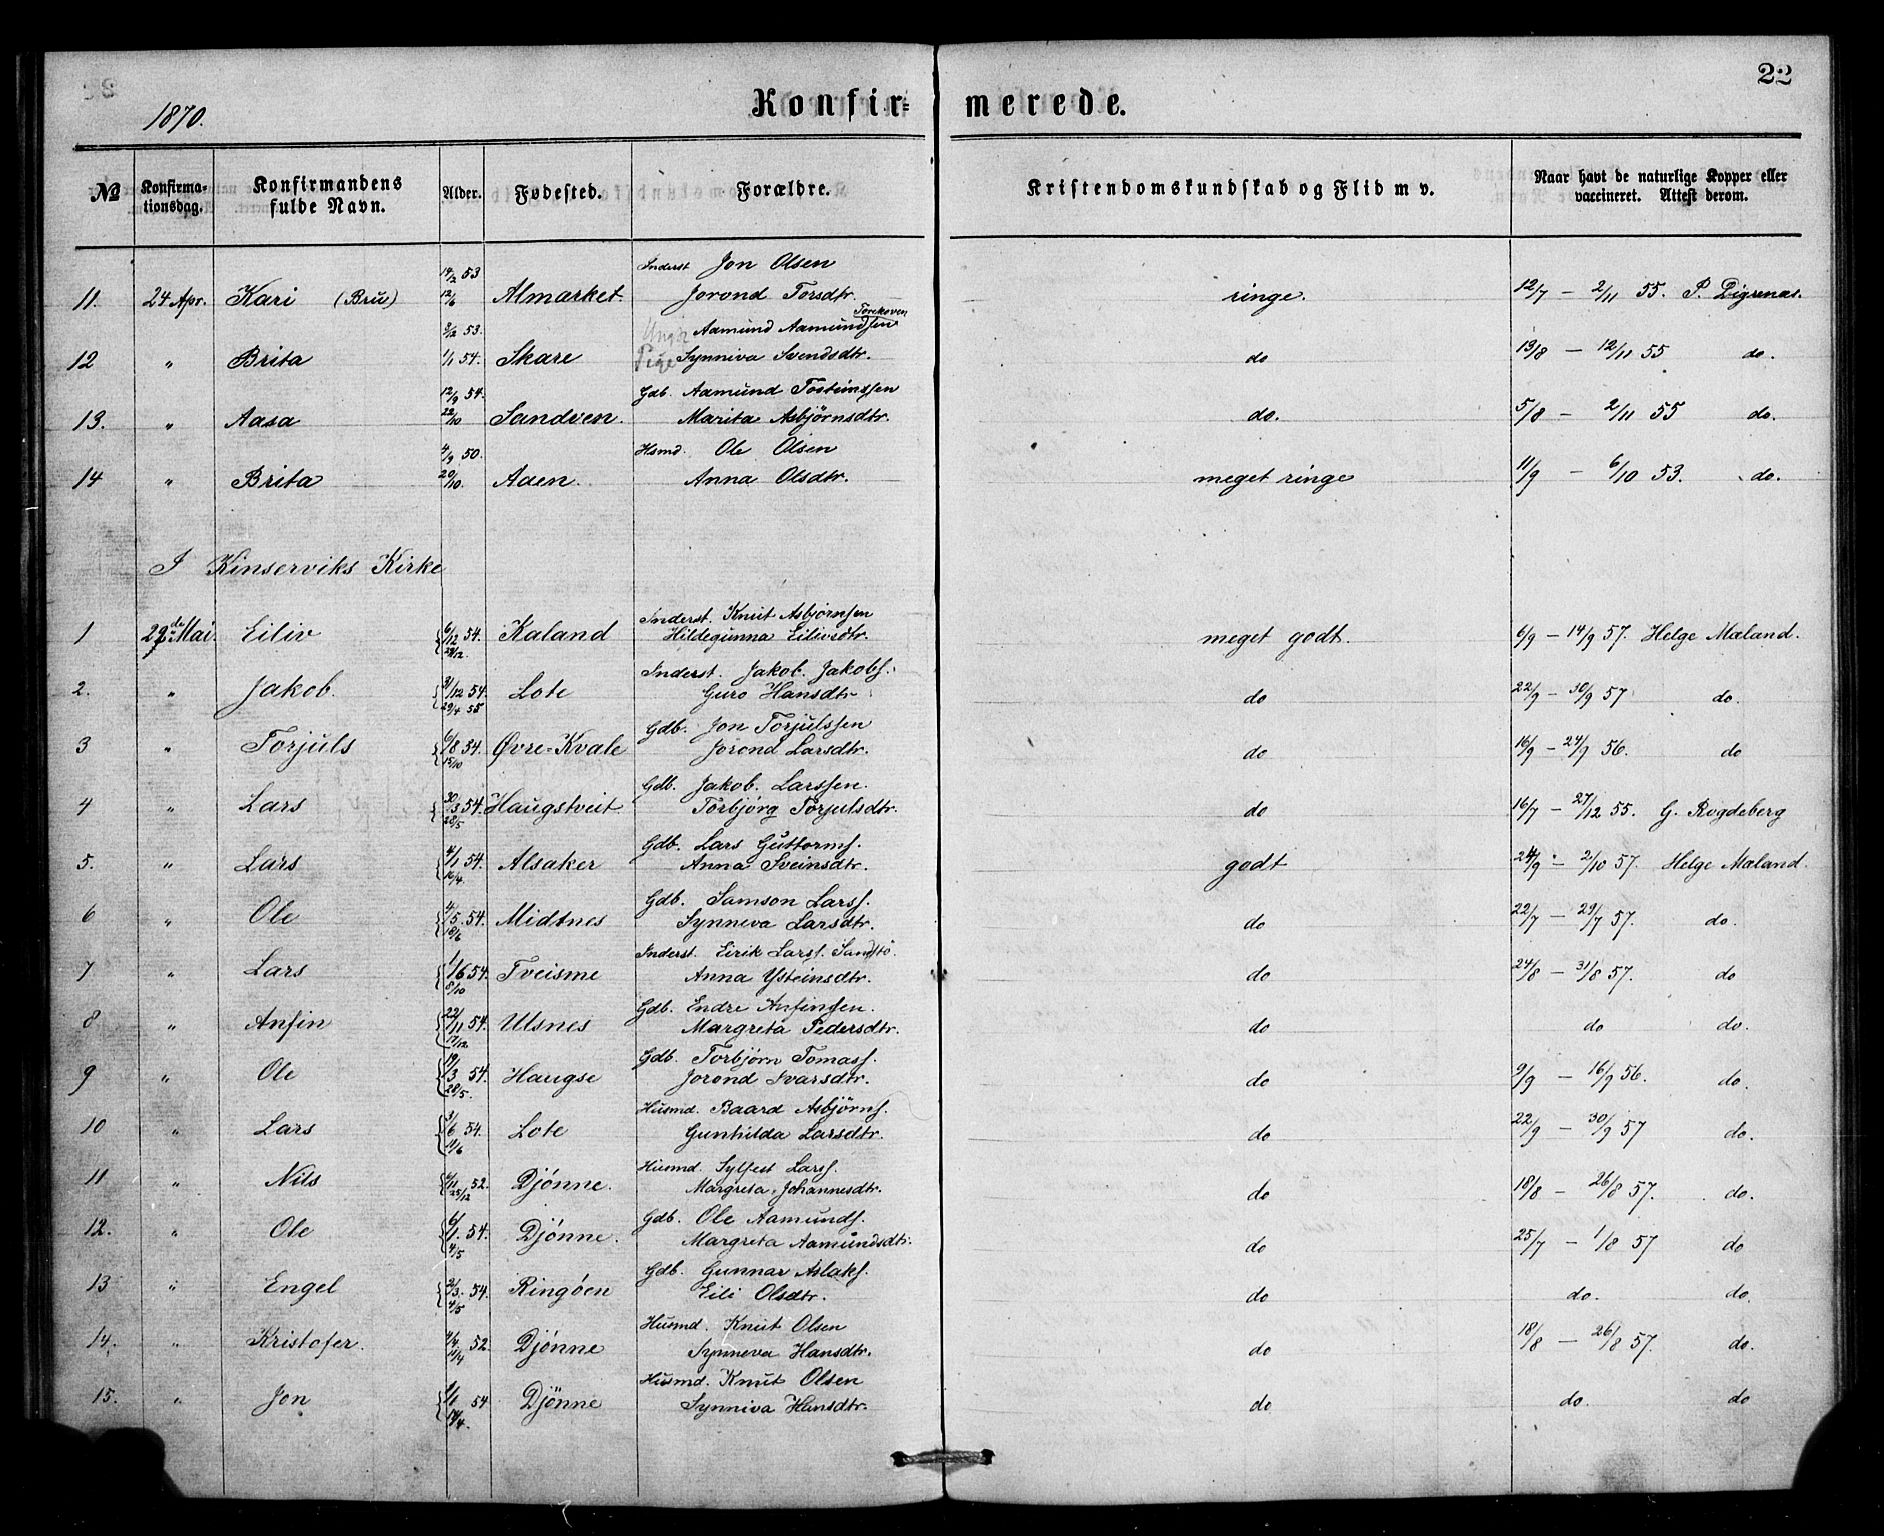 22
1870.
Konfir= merede.
№ Konfirma-tionsdag. Konfirmandens fulde Navn. Alder. Fødested. Forældre. Kristendomskundskab og Flid m v. Naar havt de naturlige Kopper eller vaccineret. Attest derom.
14/2 53 Inderst Jon Olsen
11. 24 Apr. Kari (Bru) 12/6 Almarket Jorond Torsdtr. ringe. 12/7 — 2/11 55. P. Digrenæs.
3/2 53. Unge Aamund Aamundsen
12 " Brita 1/1 54. Skare Pige Synniva Svendsdtr. do 13/8 — 12/11 55 do.
12/9 54. Gdb. Aamund Tosteinssen
13. " Aasa 22/10 Sandven. Marita Asbjörnsdtr. do. 5/8 — 2/11 55 do.
4/9 50. Hsmd. Ole Olsen
14 " Brita 20/10 Aden. Anna Olsdtr. meget ringe 11/9 — 6/10 53. do.
I Kinserviks Kirke
Inderst. Knut Asbjørnsen
1 29de Mai. Eiliv 6/12 54. Kaland Hildegunna Eilivsdtr. meget godt. 6/9 — 14/9 57. Helge Mæland.
Inderst. Jakob Jakobs.
2. " Jakob. 31/12 54. 29/4 55 Lote Guro Hansdtr do 22/9 — 30/9 57 do.
Gdb. Jon Torjulssen
3 " Torjuls 6/8 54. 15/10 Øvre=Kvale Jorond Larsdtr. do 16/9 — 24/9 56. do
Gdb. Jakob. Larssen.
4 " Lars 30/3 54. 28/5 Haugstveit Torbjörg Torjulsdtr. do 16/7 — 27/12 55. G. Rogdeberg
Gdb. Lars Guttorms.
5. " Lars 4/1 54. 16/4. Alsaker Anna Sveinsdtr. godt 24/9 — 2/10 57. Helge Mæland.
Gdb. Samson Larss.
6 " Ole 4/5. 54. 18/6 Midtnes Synneva Larsdtr. do 22/7 — 29/7 57. do.
Inderst. Eirik Larss. Sandstø
7 " Lars 1/6 54. 8/10 Tveisme Anna Ysteinsdtr. do 24/8 — 31/8 57. do
Gdb. Endre Anfinsen.
8 " Anfin 22/11 54. 17/12 Ulsnes Margreta Pedersdtr. do do do.
Gdb. Torbjörn Tomass.
9 " Ole 19/3 54. 28/5. Haugse Jorond Ivarsdtr. do 9/9 — 16/9 56. do.
Husmd. Baard Asbjörns.
10 " Lars 3/6 54. 11/6 Lote Gunhilda Larsdtr. do 22/9 — 30/9 57 do.
Husmd. Sylfest Larss.
11 " Nils 52. 25/12 Djönne. Margreta Johannesdtr. do 18/8 — 26/8 57. do.
Gdb. Ole Aamunds.
12. " Ole 6/1. 54. 4/5 Djönne. Margreta Aamundsdtr. do 25/7 — 1/8 57 do
Gdb. Gunnar Aslaks.
13 " Engel 2/3. 54. 4/5 Ringöen Eili Olsdtr. do do. do.
Husmd. Knut Olsen
14. " Kristofer. 52. 11/4 Djönne Synneva Hansdtr. do 18/8 — 26/8 57. do.
Husmd. Knut Olsen
15. " Jon 1/1 54 17/4. Djönne Synniva Hansdtr. do do. do